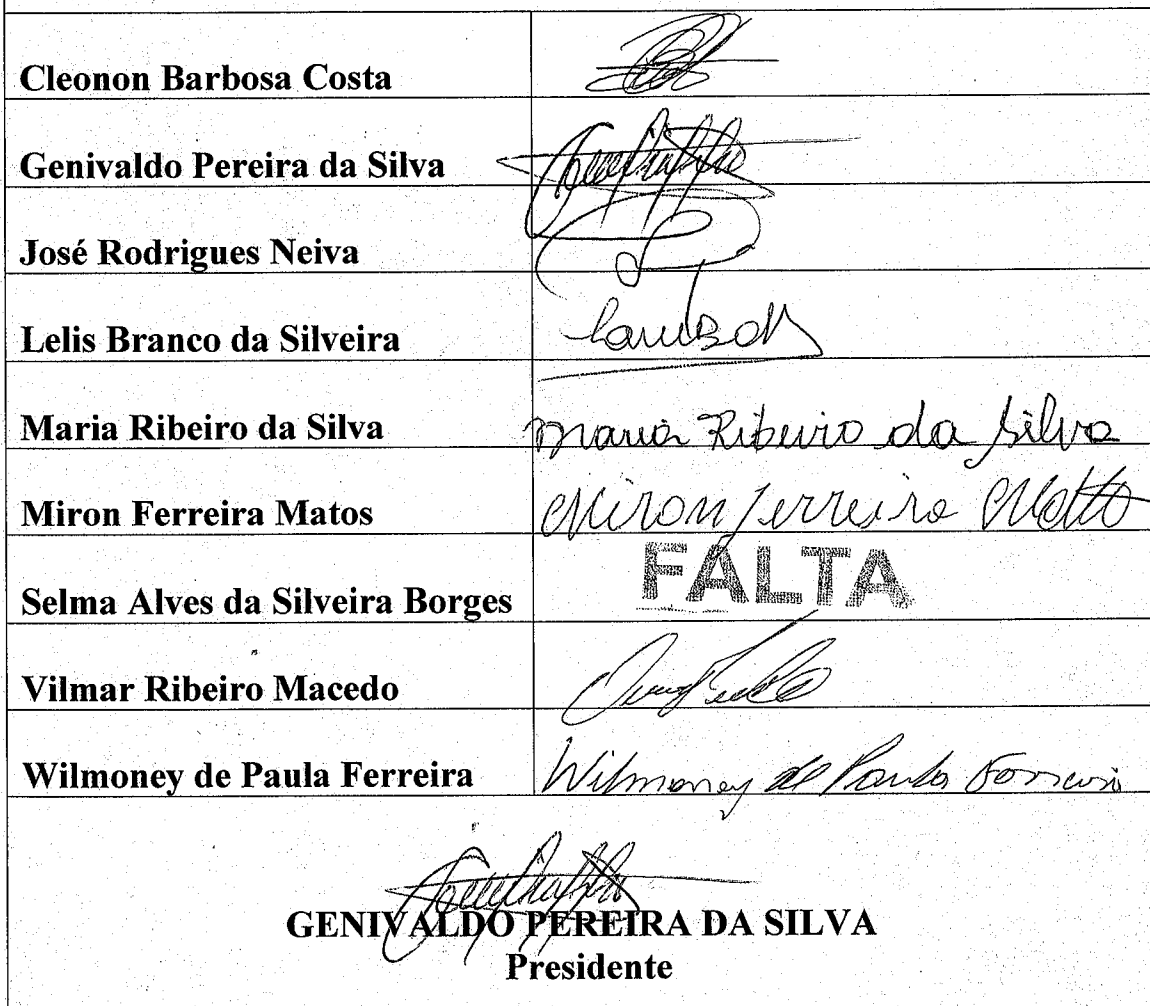 Cleonon Barbosa Costa
Genivaldo Pereira da Silva
José Rodrigues Neiva
Lelis Branco da Silveira
Maria Ribeiro da Silva Maria Ribeiro da Silva
Miron Ferreira Matos Miron Ferreira Matos
Selma Alves da Silveira Borges FALTA
Vilmar Ribeiro Macedo
Wilmoney de Paula Ferreira Wilmoney de Paula Ferreira
GENIVALDO PEREIRA DA SILVA
Presidente